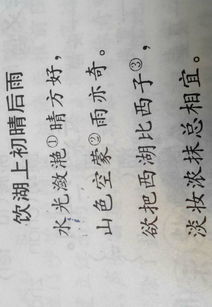 饮湖上初晴后雨
水光潋滟①晴方好，
山色空蒙②雨亦奇。
欲把西湖比西子③，
淡妆浓抹总相宜。